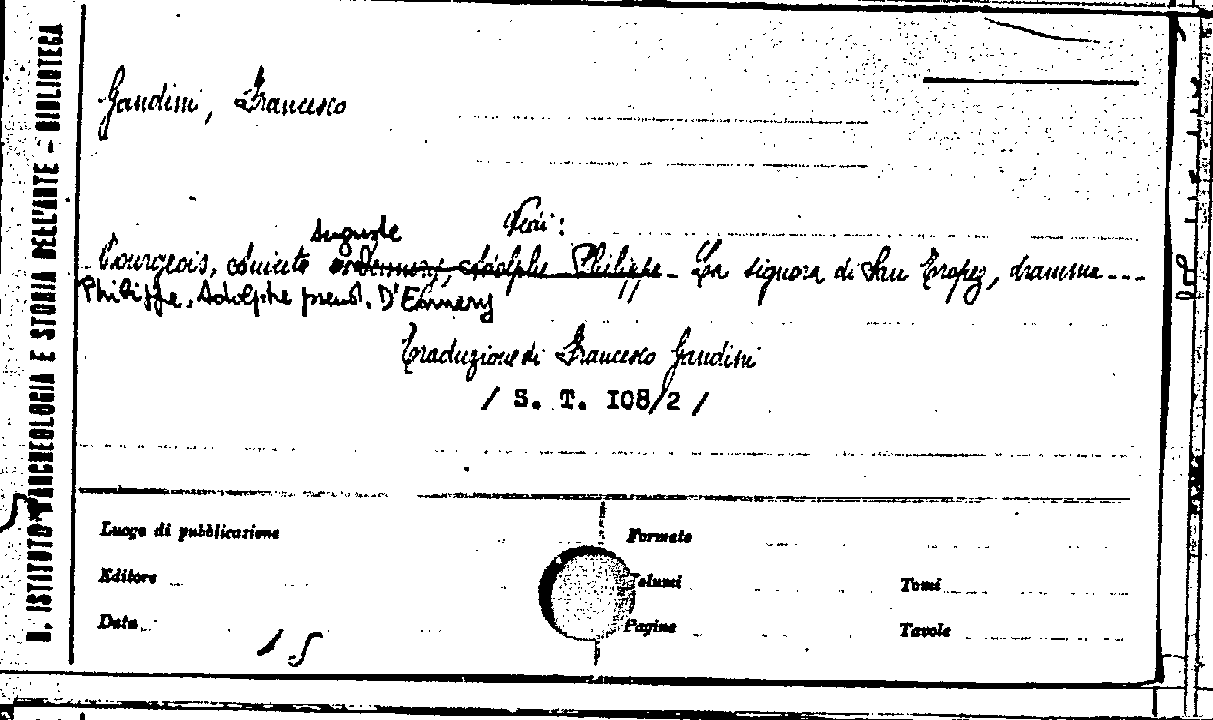 R. ISTITUTO D'ARCHEOLOGIA E STORIA DELL'ARTE - BIBLIOTECA
Gandini, Francesco
Vedi:
Auguste
Bourgeois, Anicete e Dennery, Adolphe Philippe - La signora di San Tropez, dramma ---
Philippe, Adolphe pseud. D'Ennery
Traduzione di Francesco Gandini
/ S. T. 108/2 /
Luogo di pubblicazione
Formato
Editore
Volumi
Tomi
Data
Pagine
Tavole
15